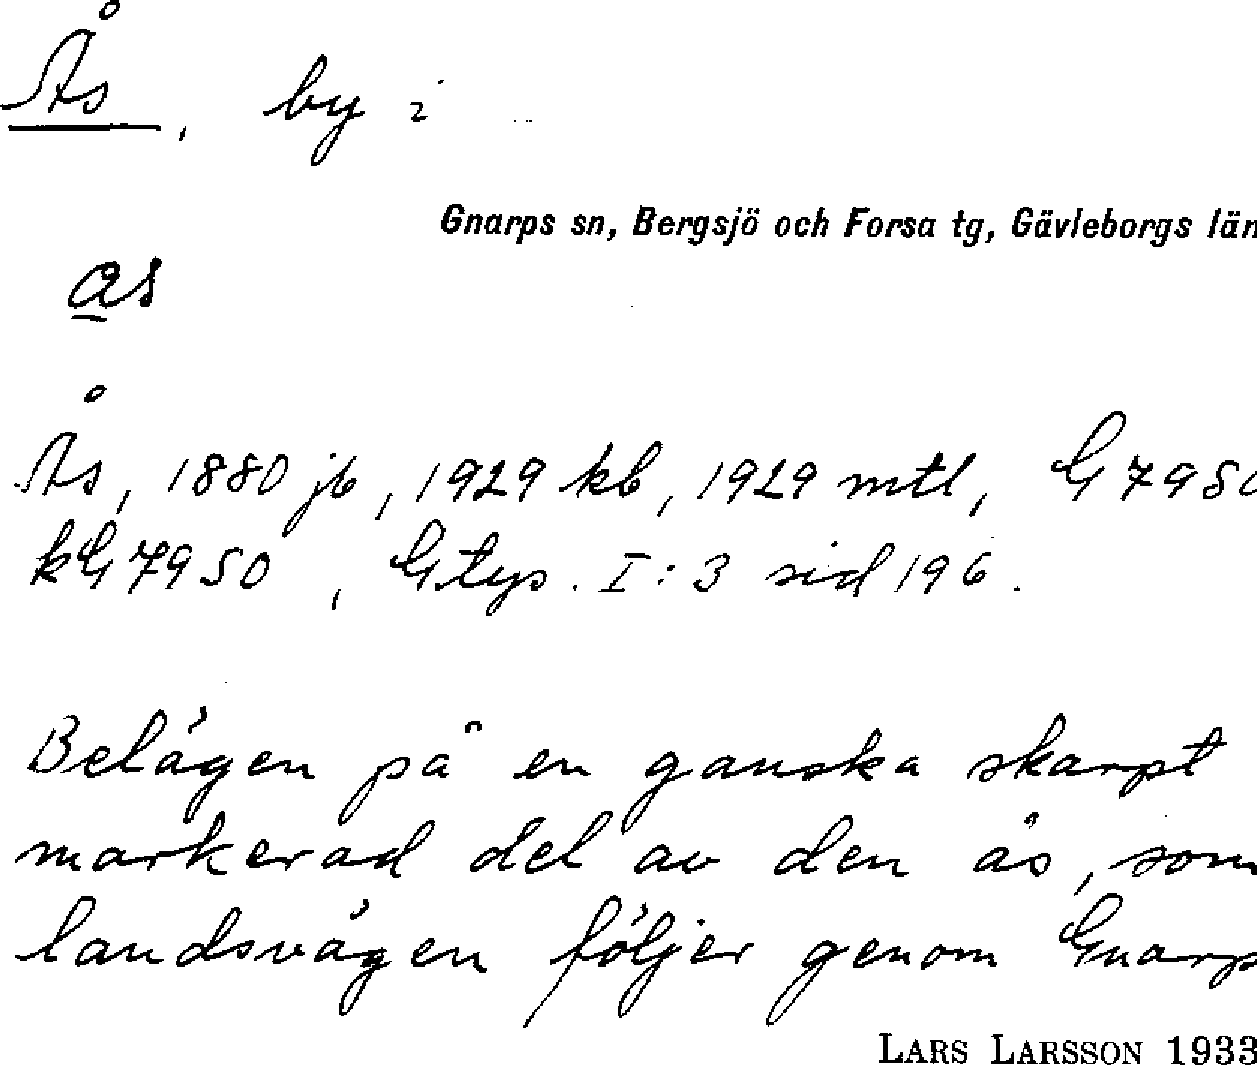 Ås, by i
Gnarps sn, Bergsjö och Forsa tg, Gävleborgs län
a̲s
Ås, 1880 jb, 1929 kb, 1929 mtl, G 7950
kG 7950, Gtys. I:3 sid 196.
Belägen på en ganska skarpt
markerad del av den ås, som
landsvägen följer genom Gnarp
LARS LARSSON 1933